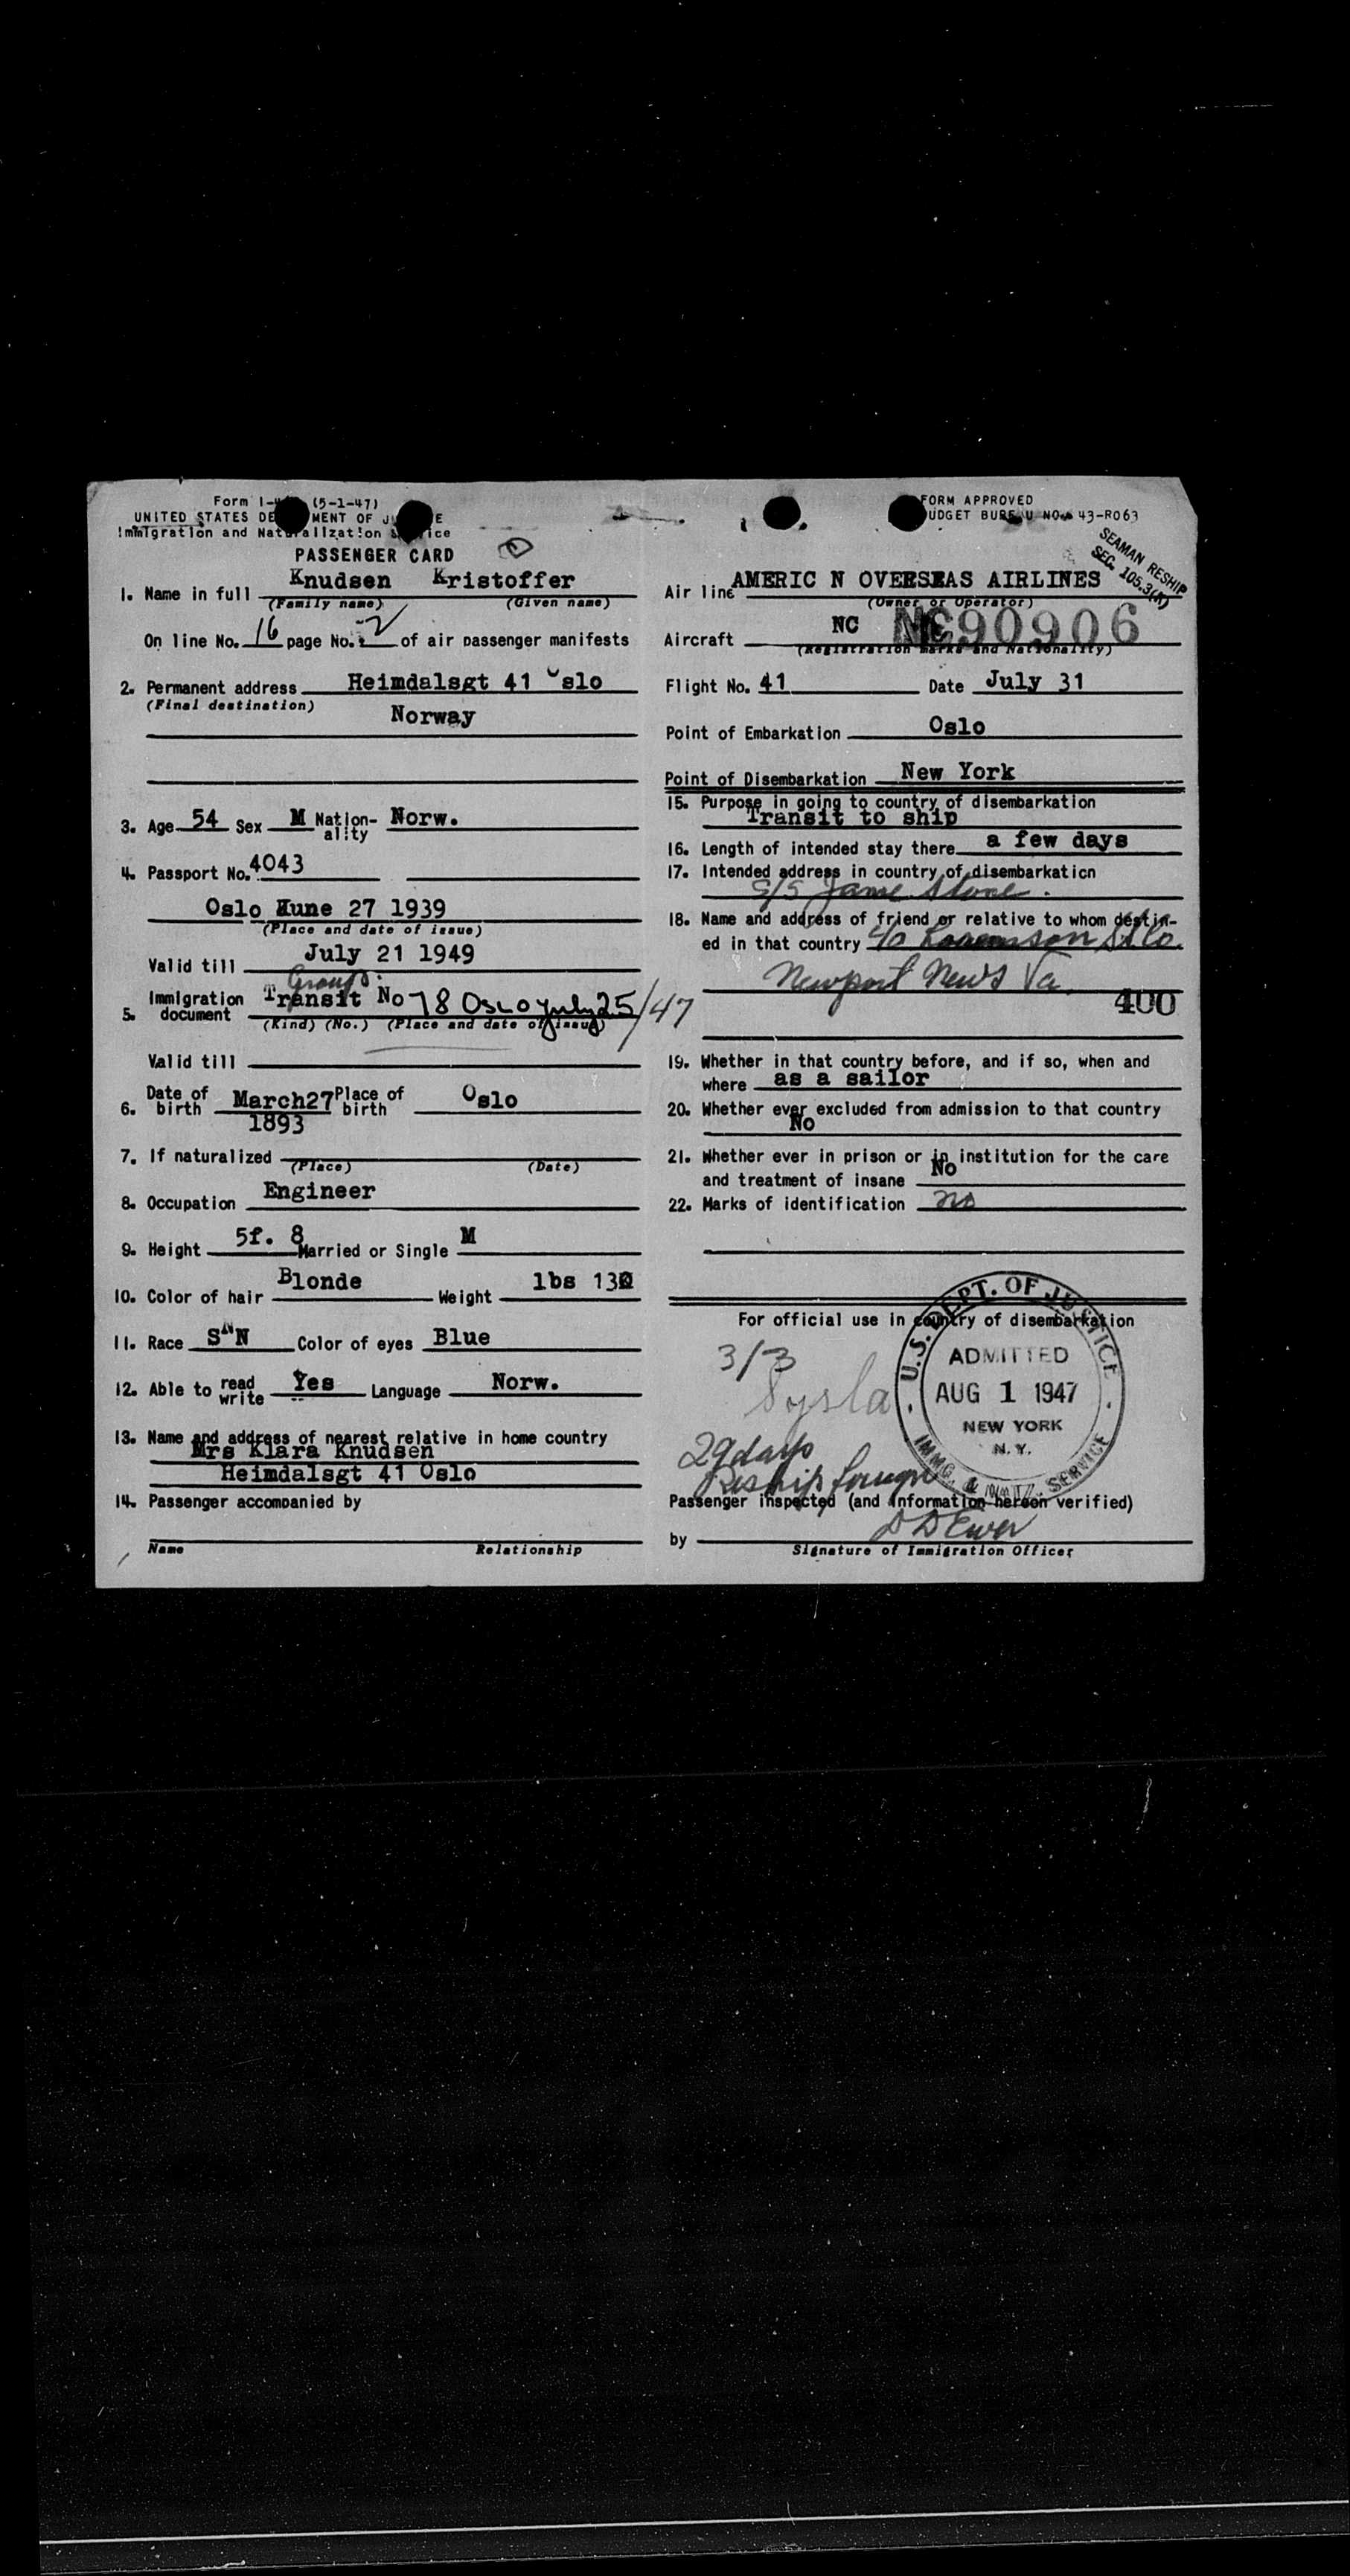 Form I- (5-1-47)
UNITED STATES DE MENT OF J E
Immigration and Naturalization S ice
PASSENGER CARD
1. Name in full Knudsen Kristoffer
(Family name) (Given name)
On line No. 16 page No. 2 of air passenger manifests
2. Permanent address Heimdalsgt 41 Oslo
(Final destination)
Norway
3. Age 54 Sex M Nation-ality Norw.
4. Passport No. 4043
Oslo Hune 27 1939
(Place and date of issue)
Valid till July 21 1949
Group
5. Immigration document Transit No 78 Oslo july 25/47
(Kind) (No.) (Place and date of issue)
Valid till
6. Date of birth March27 1893 Place of birth Oslo
7. If naturalized
(Place) (Date)
8. Occupation Engineer
9. Height 5f. 8 Married or Single M
10. Color of hair Blonde Weight lbs 130
11. Race SAN Color of eyes Blue
12. Able to read write Yes Language Norw.
13. Name and address of nearest relative in home country
Mrs Klara Knudsen
Heimdalsgt 41 Oslo
14. Passenger accompanied by
Name Relationship
FORM APPROVED
UDGET BUREAU NO. 43-R063
SEAMAN RESHIP
SEC. 105.3(A)
Air line AMERIC N OVERSEAS AIRLINES
(Owner or Operator)
Aircraft NC NC90906
(Registration marks and Nationality)
Flight No. 41 Date July 31
Point of Embarkation Oslo
Point of Disembarkation New York
15. Purpose in going to country of disembarkation
Transit to ship
16. Length of intended stay there a few days
17. Intended address in country of disembarkation
S/S Jane Stove.
18. Name and address of friend or relative to whom destin-
ed in that country c/o & Co.
Newport News Va.
400
19. Whether in that country before, and if so, when and
where as a sailor
20. Whether ever excluded from admission to that country
No
21. Whether ever in prison or in institution for the care
and treatment of insane No
22. Marks of identification no
For official use in country of disembarkation
3/3
29 days
Reship foreign
U.S. DEPT. OF JUSTICE
ADMITTED
AUG 1 1947
NEW YORK
N.Y.
IMMG. & NATZ. SERVICE
Passenger inspected (and information hereon verified)
by D D Ewer
Signature of Immigration Officer